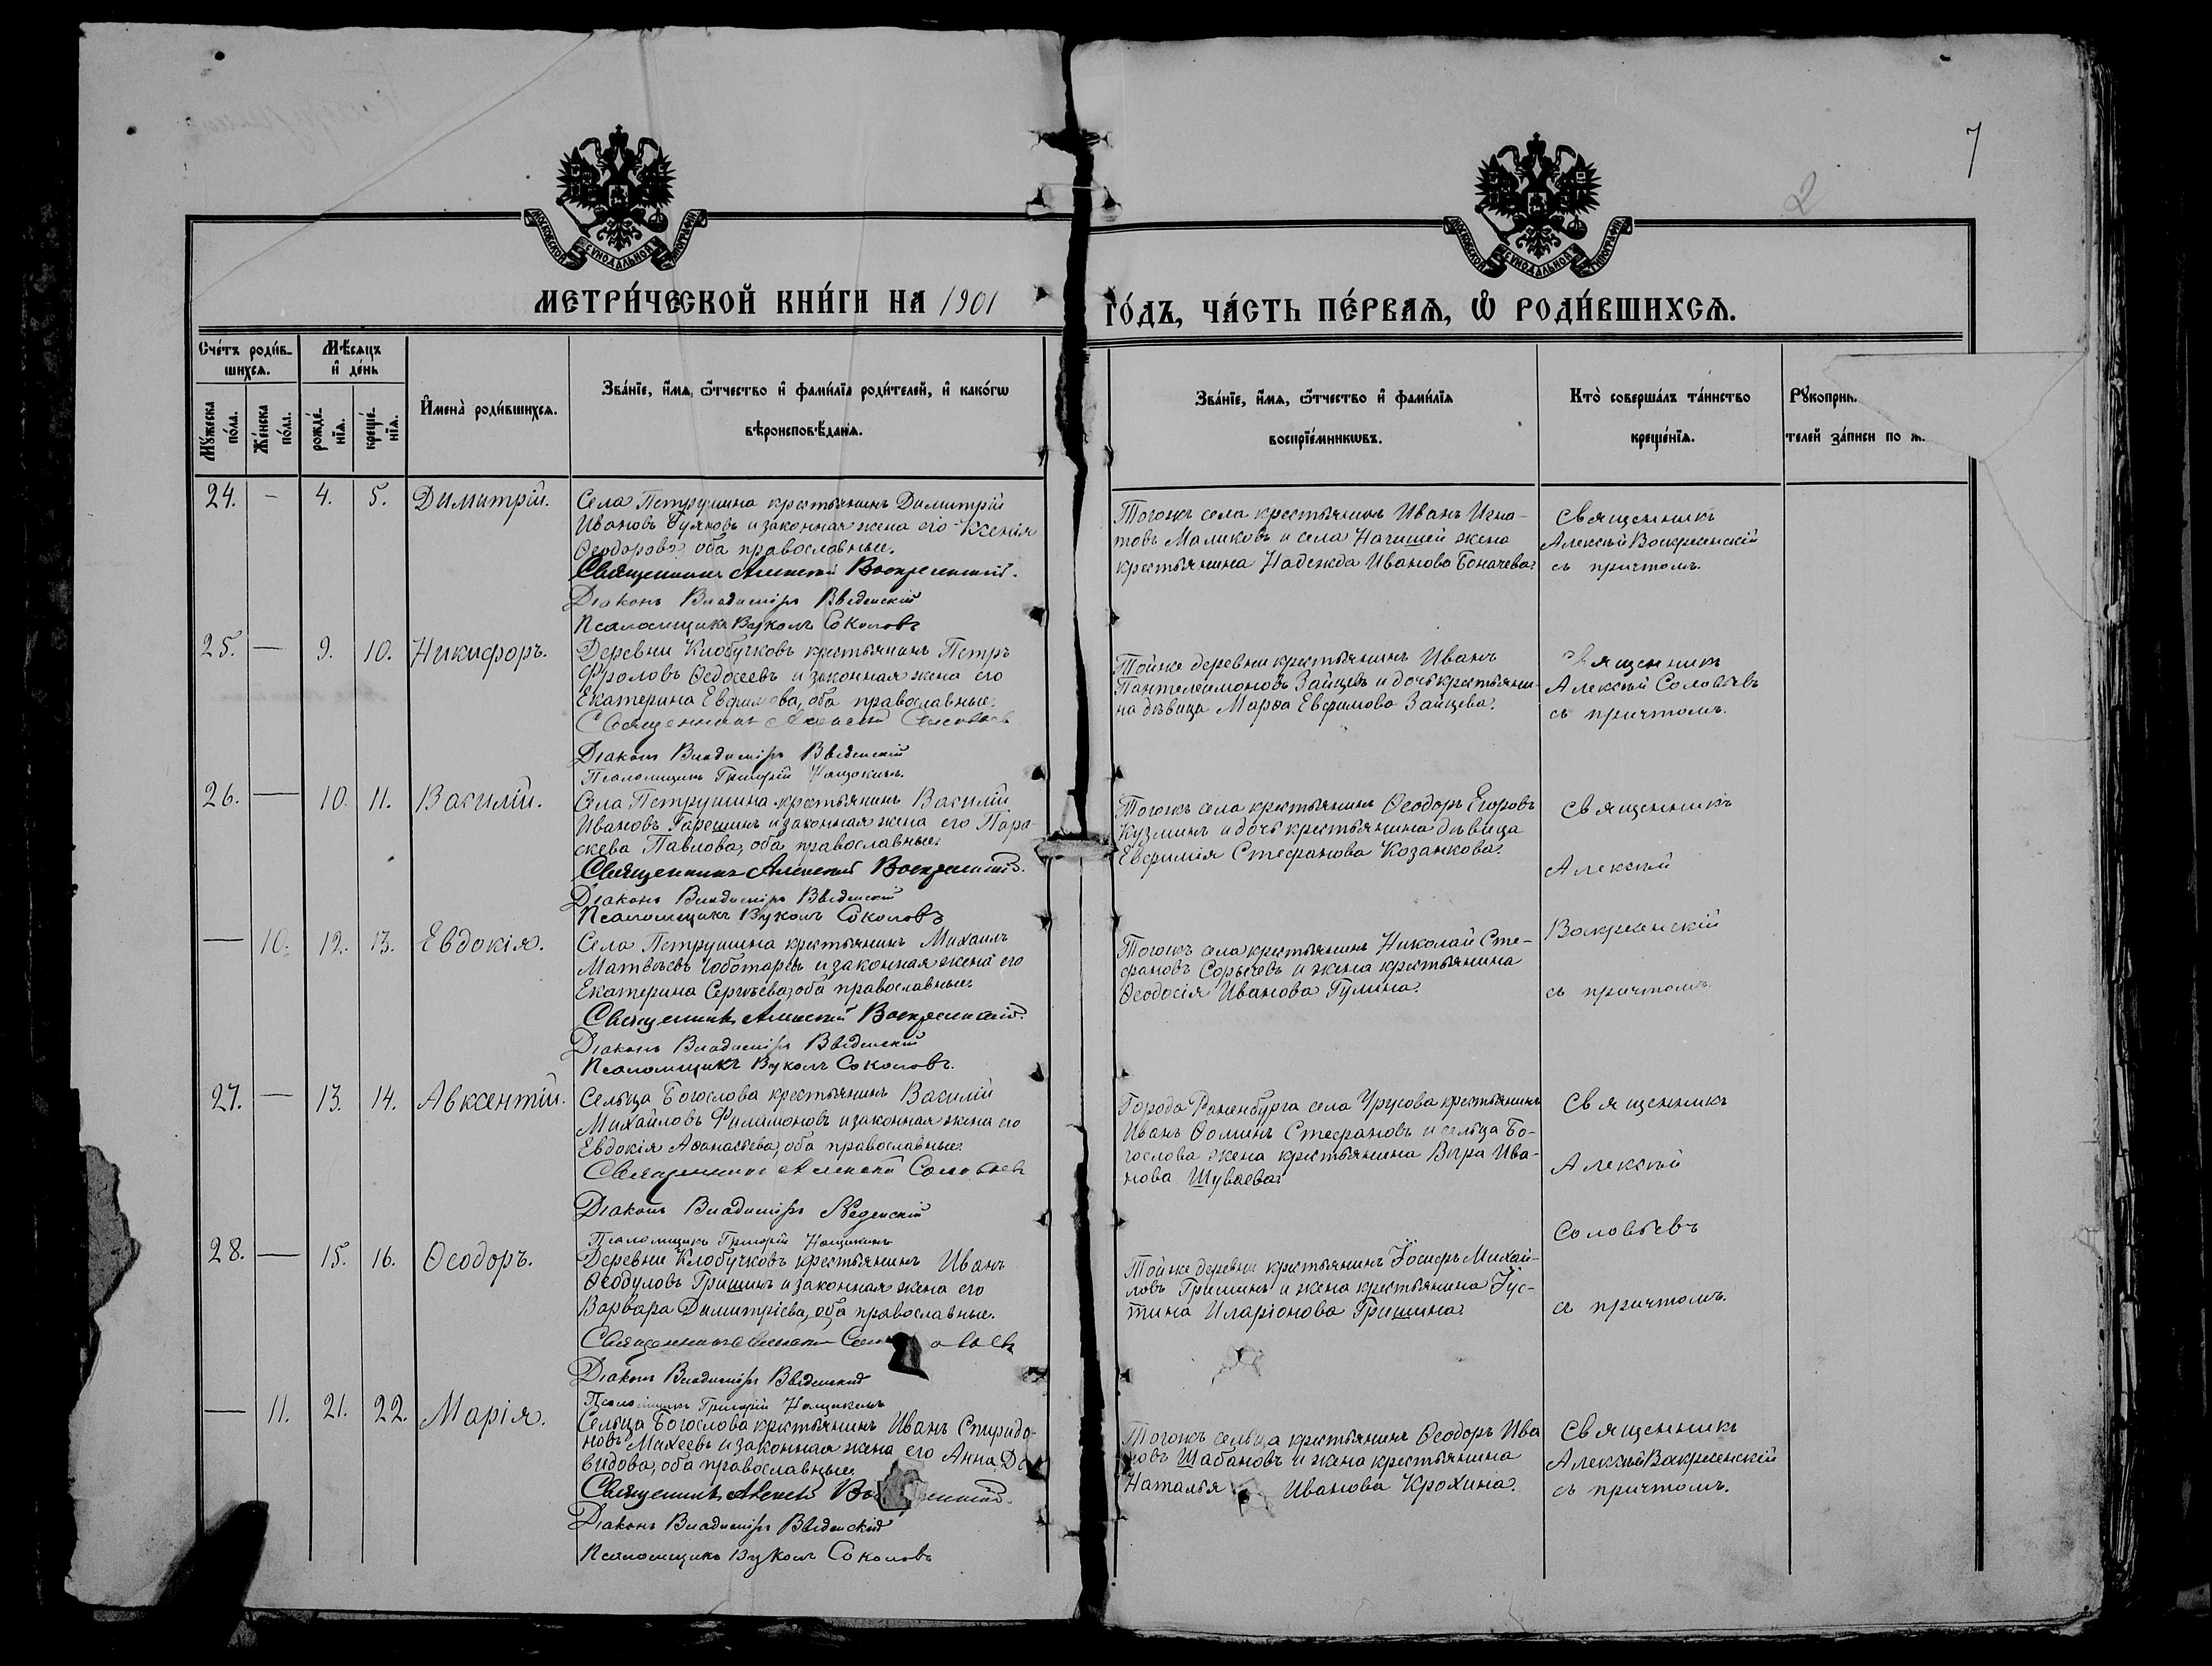 7
2
МОСКОВСКОЙ СѴНОДАЛЬНОЙ ТИПОГРАФІИ
МОСКОВСКОЙ СѴНОДАЛЬНОЙ ТИПОГРАФІИ
МЕТРИ́ЧЕСКОЙ КНИ́ГИ НА 1901
ГО́ДЪ, ЧА́СТЬ ПЕ́РВАѦ, Ѡ РОДИ́ВШИХСѦ.
Сче́тъ роди́в-
шихсѧ.
Мѣ́сѧцъ
и҆ де́нь
Мꙋ́жеска
по́ла.
Же́нска
по́л.
рожде́-
нїѧ.
креще́-
нїѧ.
И҆мена̀ роди́вшихсѧ.
Зва́нїе, и҆́мѧ, ѻ҆́тчество и҆ фами́лїѧ роди́телей, и҆ како́гѡ
вѣроисповѣ́данїѧ.
Зва́нїе, и҆́мѧ, ѻ҆́тчество и҆ фами́лїѧ
воспрїе́мникѡвъ.
Кто̀ соверша́лъ та́инство
креще́нїѧ.
Рꙋкопри
телей за́писи по ж.
24. - 4. 5. Димитрій.
Села Петрушина крестьянинъ Димитрій
Ивановъ Гуляковъ и законная жена его Ксенія
Ѳеодорова, оба православные.
Священникъ Алексѣй Воскресенскій.
Діаконъ Владиміръ Введенскій
Псаломщикъ Вуколъ Соколовъ
Тогожъ села крестьянинъ Иванъ Игна-
товъ Маликовъ и села Нагишей жена
крестьянина Надежда Иванова Боначева.
Священникъ
Алексѣй Воскресенскій
съ причтомъ.
25. — 9. 10. Никифоръ.
Деревни Клобучковъ крестьянинъ Петръ
Фроловъ Ѳедосеевъ и законная жена его
Екатерина Евфимова, оба православные.
Священникъ Алексѣй Соловьевъ
Діаконъ Владиміръ Введенскій
Псаломщикъ Григорій Нащокинъ.
Тойже деревни крестьянинъ Иванъ
Пантелеимоновъ Зайцевъ и дочь крестьяни-
на дѣвица Марѳа Евфимова Зайцева.
Священникъ
Алексѣй Соловьевъ
съ причтомъ.
26. — 10. 11. Василій.
Села Петрушина крестьянинъ Василій
Ивановъ Гарешинъ и законная жена его Пара-
скева Павлова, оба православные.
Священникъ Алексѣй Воскресенскій.
Діаконъ Владиміръ Введенскій
Псаломщикъ Вуколъ Соколовъ
Тогожъ села крестьянинъ Ѳеодоръ Егоровъ
Кузминъ и дочь крестьянина дѣвица
Евфимія Стефанова Козанкова.
Священникъ
Алексѣй
Воскресенскій
съ причтомъ.
— 10. 12. 13. Евдокія.
Села Петрушина крестьянинъ Михаилъ
Матвѣевъ Чоботаревъ и законная жена его
Екатерина Сергѣева, оба православные.
Священникъ Алексѣй Воскресенскій.
Діаконъ Владиміръ Введенскій
Псаломщикъ Вуколъ Соколовъ.
Тогожъ села крестьянинъ Николай Сте-
фановъ Сорычевъ и жена крестьянина
Ѳеодосія Иванова Гулина.
27. — 13. 14. Авксентій.
Сельца Богослова крестьянинъ Василій
Михайловъ Филимоновъ и законная жена его
Евдокія Аѳанасьева, оба православные.
Священникъ Алексѣй Соловьевъ
Діаконъ Владиміръ Введенскій
Псаломщикъ Григорій Нащокинъ
Города Раненбурга села Урусова крестьянинъ
Иванъ Ѳоминъ Стефановъ и сельца Бо-
гослова жена крестьянина Вѣра Ива-
нова Шуваева.
Священникъ
Алексѣй
Соловьевъ
съ причтомъ.
28. — 15. 16. Ѳеодоръ.
Деревни Клобучковъ крестьянинъ Иванъ
Ѳеодуловъ Гришинъ и законная жена его
Варвара Димитріева, оба православные.
Священникъ Алексѣй Соловьевъ
Діаконъ Владиміръ Введенскій
Псаломщикъ Григорій Нащокинъ
Тойже деревни крестьянинъ Іосифъ Михай-
ловъ Гришинъ и жена крестьянина Іус-
тина Иларіонова Гришина.
— 11. 21. 22. Марія.
Сельца Богослова крестьянинъ Иванъ Спиридо-
новъ Михеевъ и законная жена его Анна Да-
видова, оба православные.
Священникъ Алексѣй Воскресенскій.
Діаконъ Владиміръ Введенскій
Псаломщикъ Вуколъ Соколовъ
Тогожъ сельца крестьянинъ Ѳеодоръ Ива
новъ Шабановъ и жена крестьянина
Наталья Иванова Крохина.
Священникъ
Алексѣй Воскресенскій
съ причтомъ.